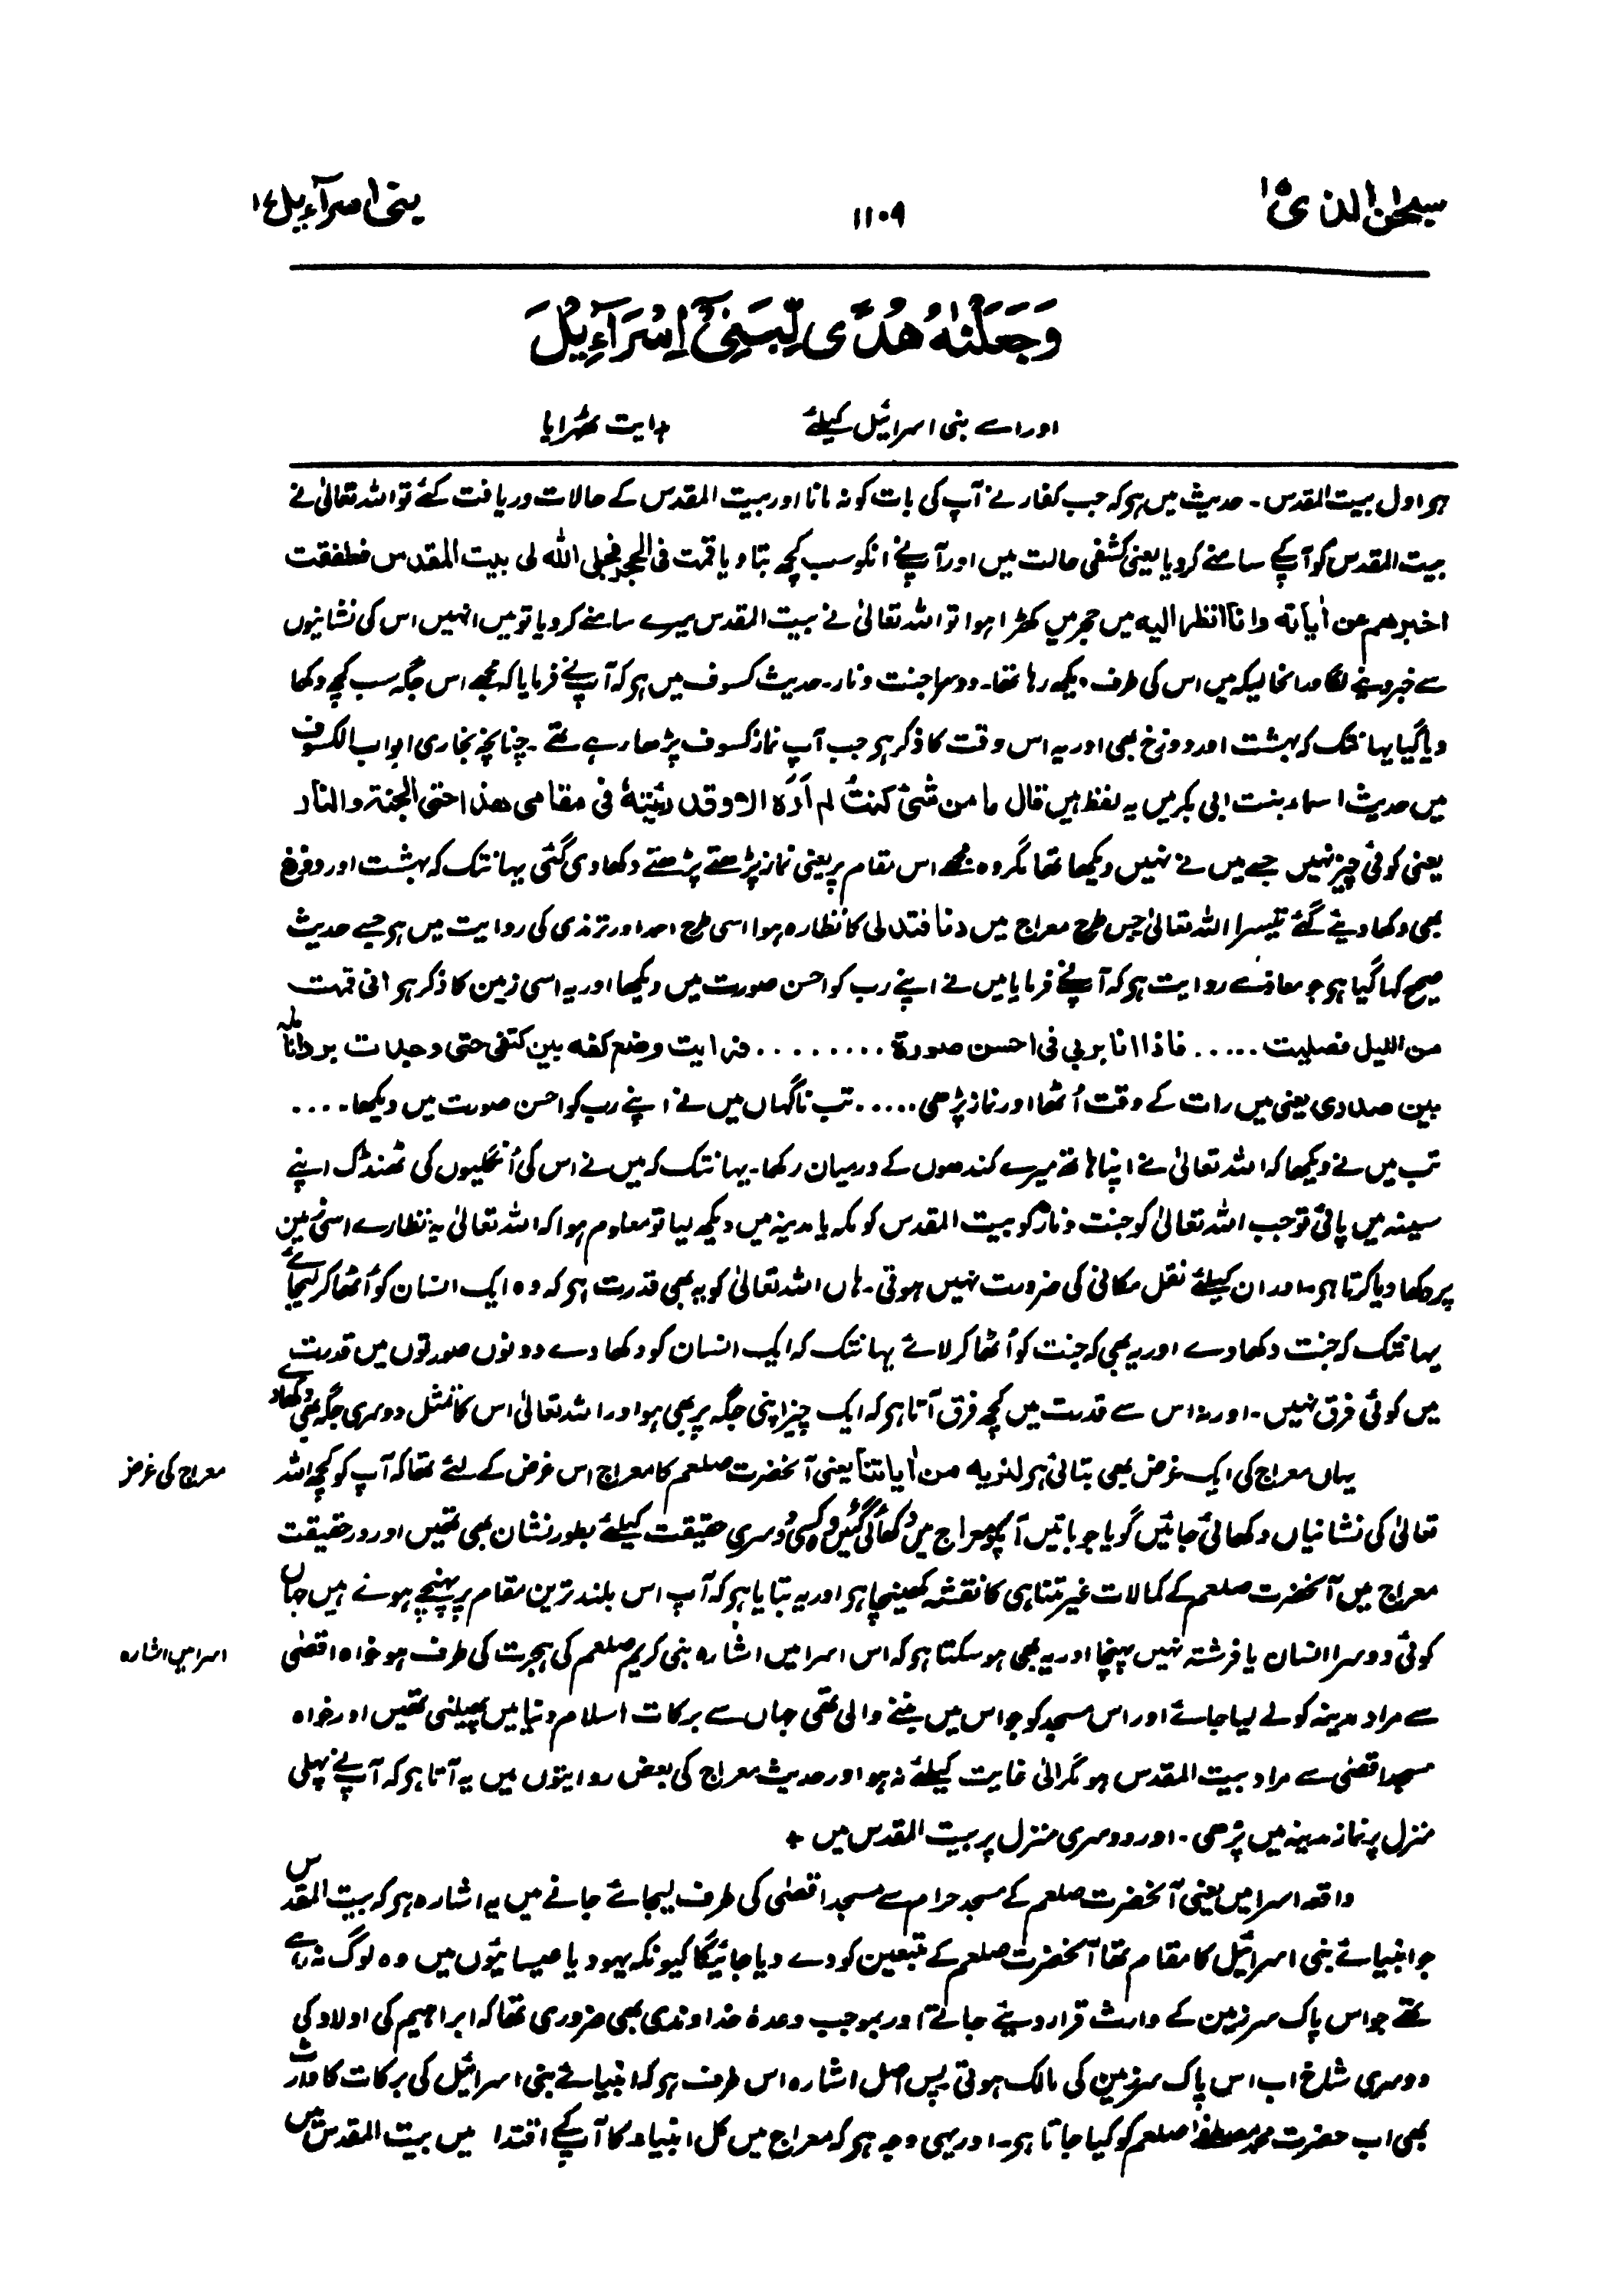 سبحٰن الذی ۱۵
۱۱۰۹
بنی اسرآءیل ۱۷
وَجَعَلْنٰهُ هُدًی لِّبَنِیْۤ اِسْرَآءِیْلَ
اور اسے بنی اسرائیل کیلئے ہدایت ٹھرایا
ہو اول بیت المقدس ۔ حدیث میں ہو کہ جب کفار نے آپ کی بات کو نہ مانا اور بیت المقدس کے حالات دریافت کئے تو اللہ تعالیٰ نے
بیت المقدس کو آپکے سامنے کردیا یعنی کشفی حالت میں اور آپنے انکو سب کچھ بتا دیا قمت فی الحجر فجلی اللہ لی بیت المقدس فطفقت
اخبرهم عن اٰیاته وانا انظر الیه میں حجر میں کھڑا ہوا تو اللہ تعالیٰ نے بیت المقدس میرے سامنے کردیا تو میں انہیں اس کی نشانیوں
سے خبر دینے لگا درانحالیکہ میں اس کی طرف دیکھ رہا تھا۔ دوسرا جنت ونار۔ حدیث کسوف میں ہو کہ آپنے فرمایا کہ مجھے اس جگہ سب کچھ دکھا
دیا گیا یہانتک کہ بہشت اور دوزخ بھی اور یہ اس وقت کا ذکر ہو جب آپ نماز کسوف پڑھا رہے تھے ۔ چنانچہ بخاری ابواب الکسوف
میں حدیث اسماء بنت ابی بکر میں یہ لفظ ہیں قال ما من شیٔ کنتُ لم اَرَہ الا وقد رئیتهٗ فی مقامی هذا حتی الجنة والنار
یعنی کوئی چیز نہیں جسے میں نے نہیں دیکھا تھا مگر وہ مجھے اس مقام پر یعنی نماز پڑھتے پڑھتے دکھا دی گئی یہانتک کہ بہشت اور دوزخ
بھی دکھا دیئے گئے تیسرا اللہ تعالیٰ جس طرح معراج میں دنا فتدلی کا نظارہ ہوا اسی طرح احمد اور ترمذی کی روایت میں ہو جسے حدیث
صحیح کہا گیا ہو جو معاذ سے روایت ہو کہ آپنے فرمایا میں نے اپنے رب کو احسن صورت میں دیکھا اور یہ اسی زمین کا ذکر ہو انی قمت
من اللیل فصلیت ..... فاذا انا بربی فی احسن صورة ......... فرایت وضع کفه بین کتفی حتی وجدت برد انامله
بین صدری یعنی میں رات کے وقت اُٹھا اور نماز پڑھی ..... تب ناگہاں میں نے اپنے رب کو احسن صورت میں دیکھا ....
تب میں نے دیکھا کہ اللہ تعالیٰ نے اپنا ہاتھ میرے کندھوں کے درمیان رکھا۔ یہانتک کہ میں نے اس کی اُنگلیوں کی ٹھنڈک اپنے
سینہ میں پائی تو جب اللہ تعالیٰ کو جنت ونار کو بیت المقدس کو مکہ یا مدینہ میں دیکھ لیا تو معلوم ہوا کہ اللہ تعالیٰ یہ نظارے اسی زمین
پر دکھا دیا کرتا ہو۔ اور ان کیلئے نقل مکانی کی ضرورت نہیں ہوتی۔ ہاں اللہ تعالیٰ کو یہ بھی قدرت ہو کہ وہ ایک انسان کو اُٹھا کر لیجائے
یہانتک کہ جنت دکھا دے اور یہ بھی کہ جنت کو اُٹھا کر لائے یہانتک کہ ایک انسان کو دکھا دے دونوں صورتوں میں قدرت
میں کوئی فرق نہیں۔ اور نہ اس سے قدرت میں کچھ فرق آتا ہو کہ ایک چیز اپنی جگہ پر بھی ہو اور اللہ تعالیٰ اس کا تمثل دوسری جگہ بھی دکھا دے
یہاں معراج کی ایک غرض بھی بتائی ہو لنریه من اٰیاتنا یعنی آنحضرت صلعم کا معراج اس غرض کے لئے تھا کہ آپ کو کچھ اللہ
معراج کی غرض
تعالیٰ کی نشانیاں دکھائی جائیں گویا جو باتیں آپکو معراج میں دکھائی گئیں وہ کسی دوسری حقیقت کیلئے بطور نشان بھی تھیں اور درحقیقت
معراج میں آنحضرت صلعم کے کمالات غیر متناہی کا نقشہ کھینچا ہو اور یہ بتایا ہو کہ آپ اس بلند ترین مقام پر پہنچے ہوئے ہیں جہاں
کوئی دوسرا انسان یا فرشتہ نہیں پہنچا اور یہ بھی ہو سکتا ہو کہ اس اسرا میں اشارہ نبی کریم صلعم کی ہجرت کی طرف ہو خواہ اقصٰی
اسرا میں اشارہ
سے مراد مدینہ کو لے لیا جائے اور اس مسجد کو جو اس میں بننے والی تھی جہاں سے برکات اسلام دنیا میں پھیلنی تھیں اور خواہ
مسجد اقصٰی سے مراد بیت المقدس ہو مگر الیٰ غایت کیلئے نہ ہو اور حدیث معراج کی بعض روایتوں میں یہ آتا ہو کہ آپنے پہلی
منزل پر نماز مدینہ میں پڑھی ۔ اور دوسری منزل پر بیت المقدس میں +
واقعہ اسرا میں یعنی آنحضرت صلعم کے مسجد حرام سے مسجد اقصٰی کی طرف لیجائے جانے میں یہ اشارہ ہو کہ بیت المقدس
جو انبیائے بنی اسرائیل کا مقام تھا آنحضرت صلعم کے متبعین کو دے دیا جائیگا کیونکہ یہود یا عیسائیوں میں وہ لوگ نہ رہے
تھے جو اس پاک سرزمین کے وارث قرار دیئے جاتے اور بموجب وعدۂ خداوندی بھی ضروری تھا کہ ابراہیم کی اولاد کی
دوسری شاخ اب اس پاک سرزمین کی مالک ہوتی پس اصل اشارہ اس طرف ہو کہ انبیائے بنی اسرائیل کی برکات کا وارث
بھی اب حضرت محمد مصطفےٰ صلعم کو کیا جاتا ہو۔ اور یہی وجہ ہو کہ معراج میں کل انبیاء کا آپکے اقتدا میں بیت المقدس میں